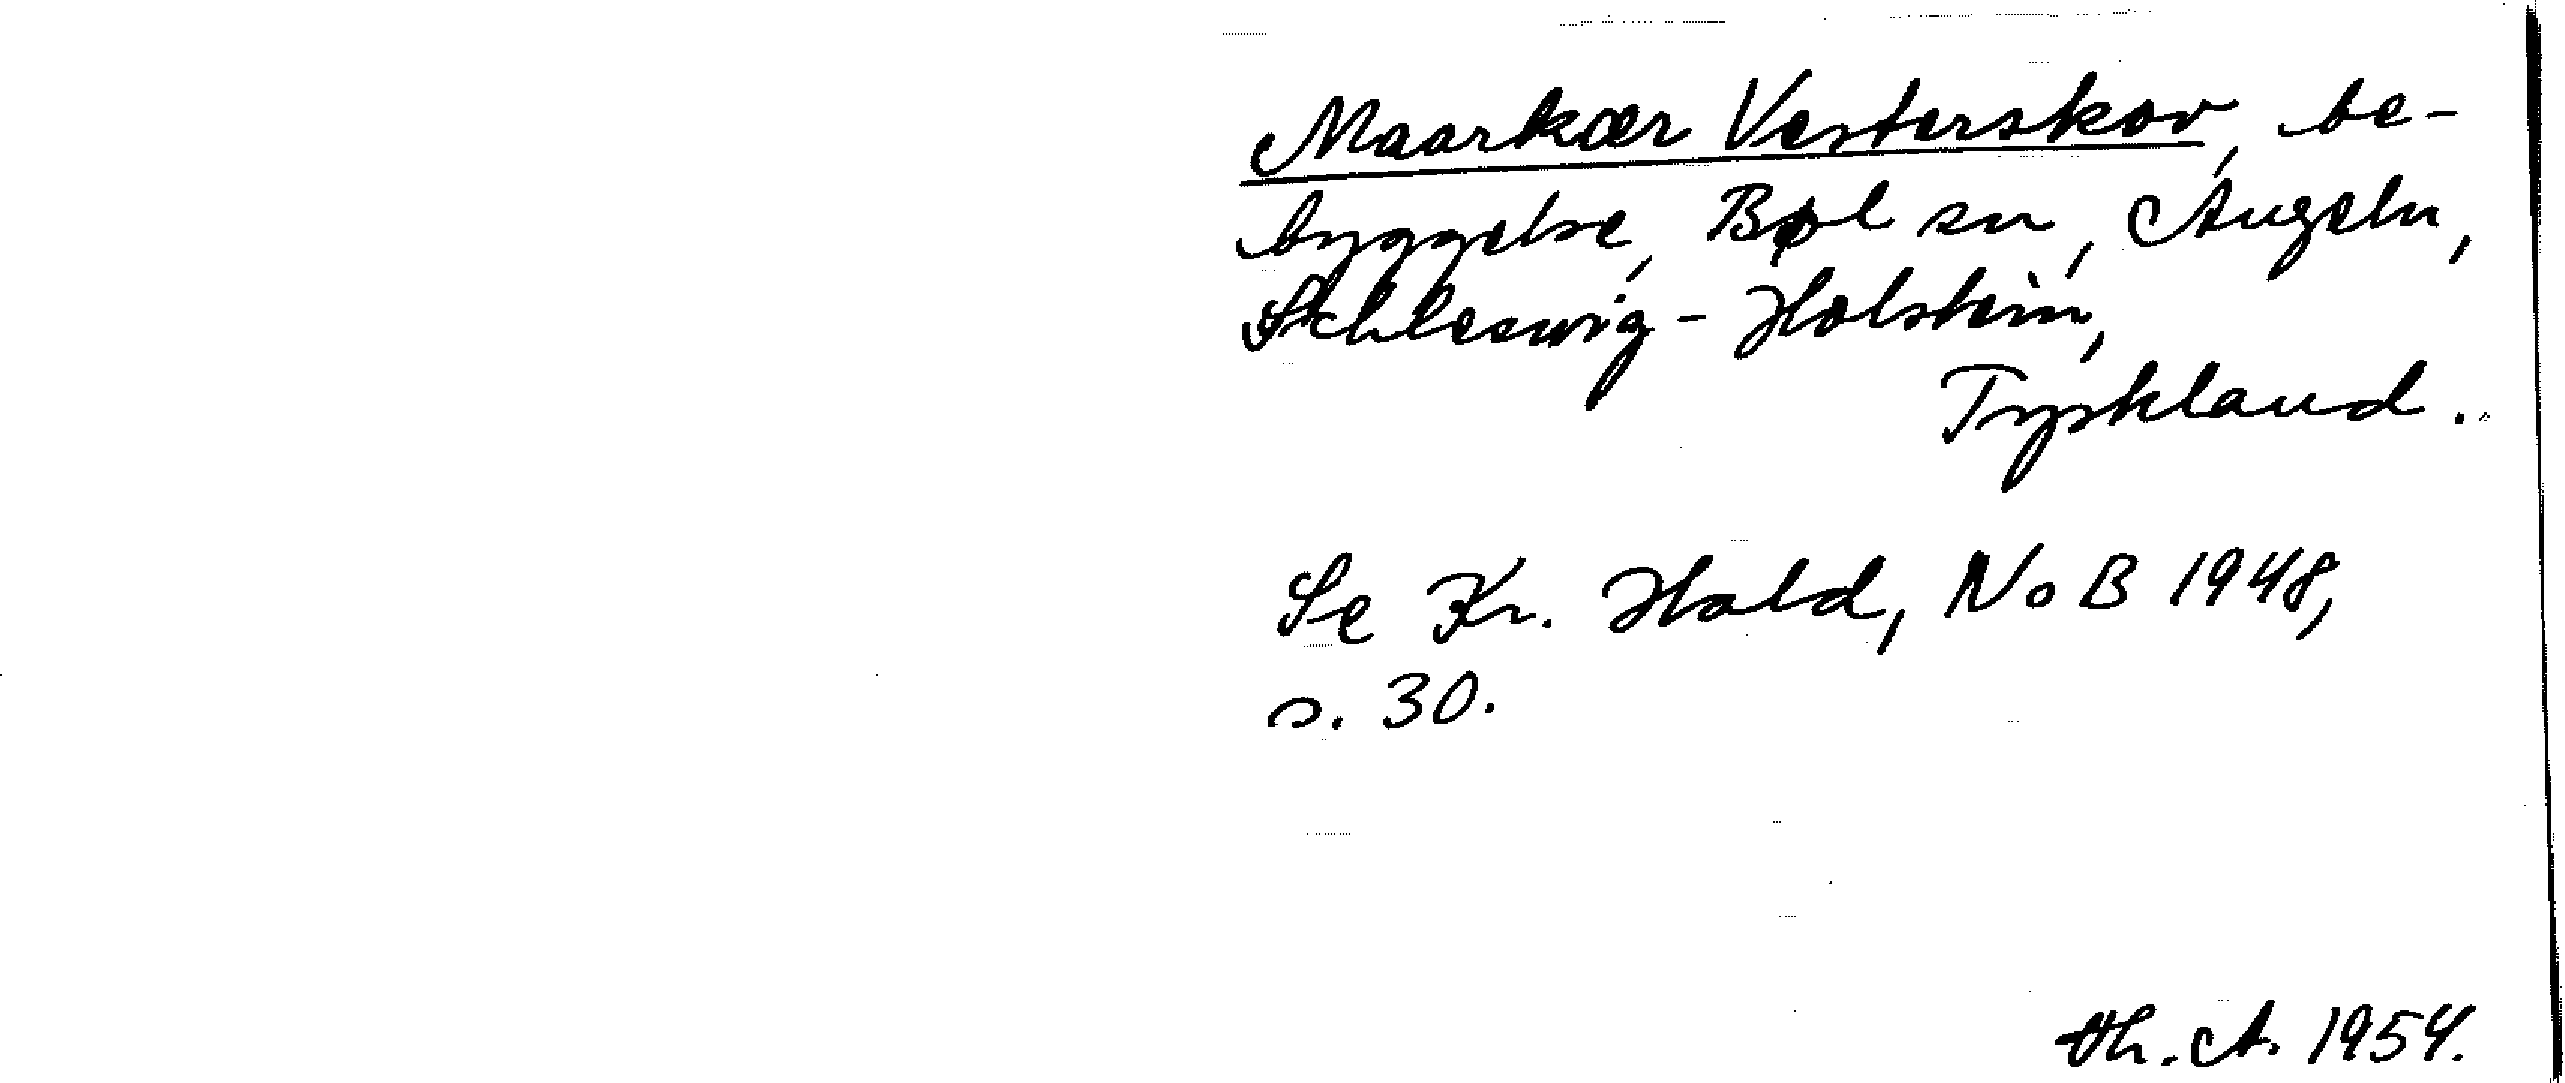 Maarkær Vesterskov, be-
byggelse, Bøl sn, Angeln,
Schleswig-Holstein,
Tyskland.
Se Kr. Hald, NoB 1948,
s. 30.
th. A. 1954.